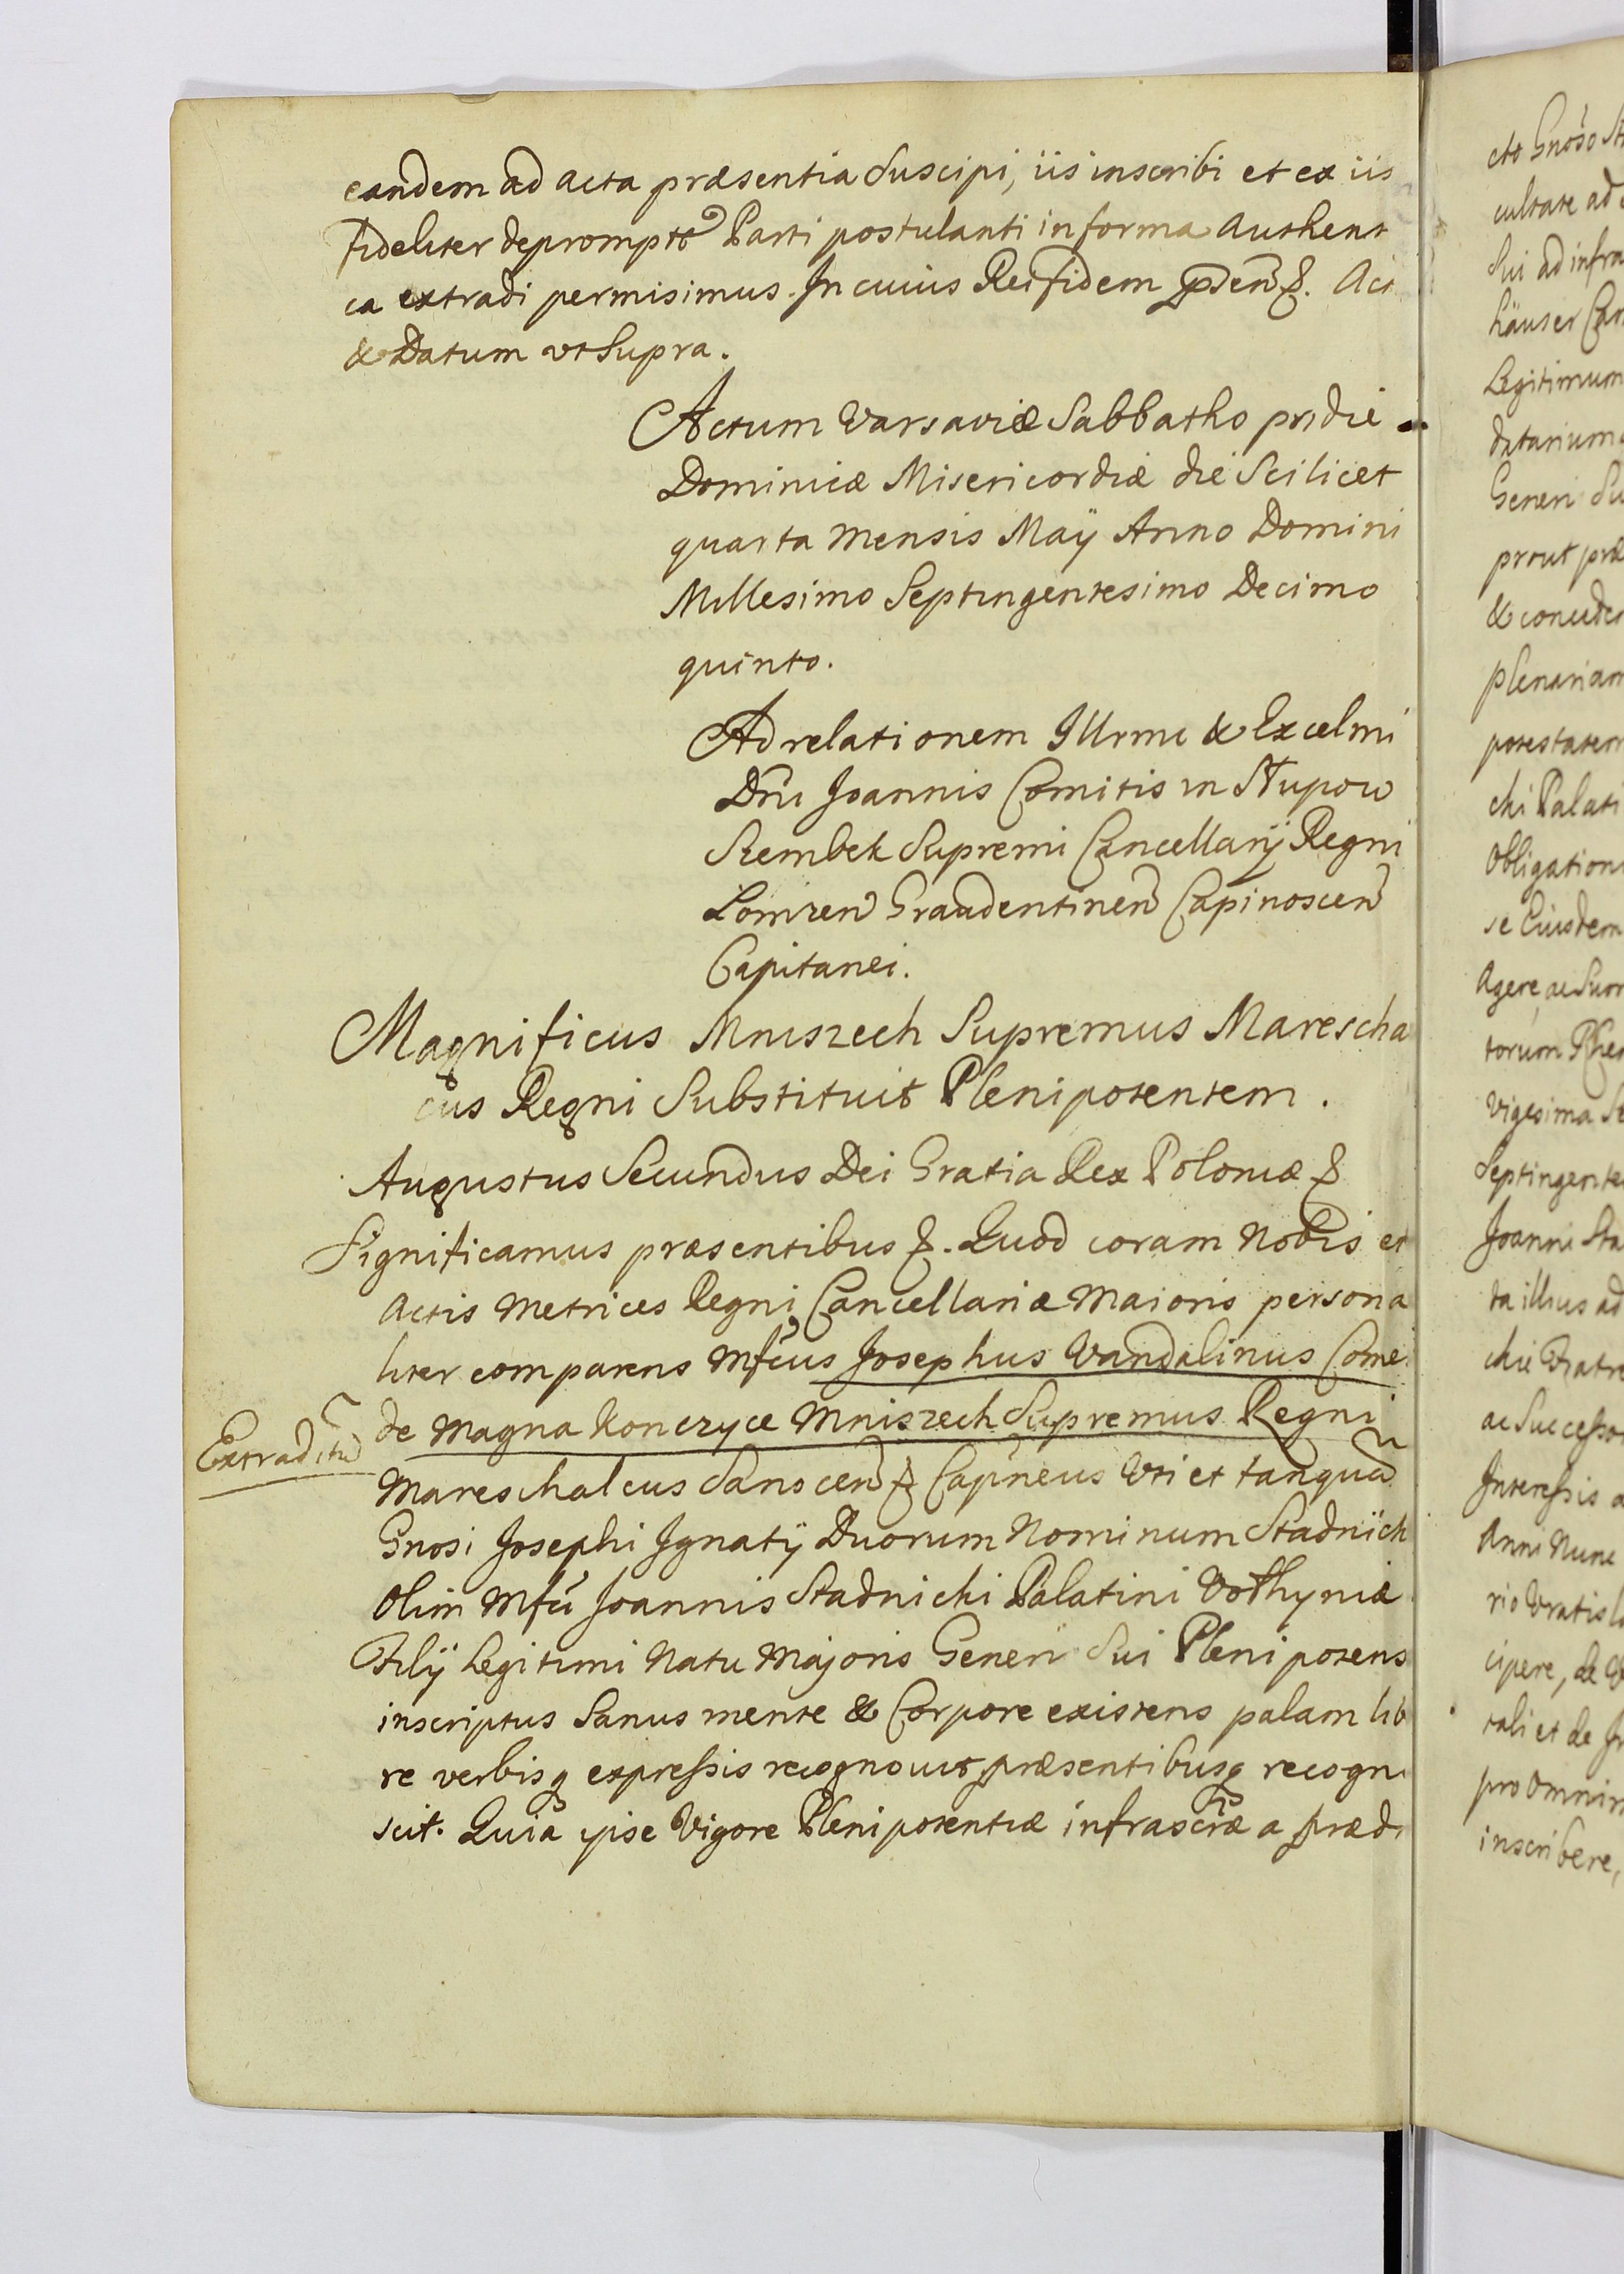 eandem ad acta præsentia suscipi, iis inscribi et ex iis
fideliter deprompto Parti postulanti in forma Authent
ca extradi permisimus. In cuius Rei fidem pñsen &. Act
& Datum vt Supra.
Actum Varsaviæ Sabbatho pridie
Dominicæ Misericordiæ die Scilicet
quarta Mensis Maÿ Anno Domini
Millesimo Septingentesimo Decimo
quinto.
Ad relationem Illrmi & Excelmi
Dñi Joannis Comitis in Słupow
Szembek Supremi Cancellarij Regni
Lomzen Graudentinen Capinoscen
Capitanei.
Magnificus Mniszech Supremus Marescha
cus Regni Substituit Plenipotentem.
Augustus Secundus Dei Gratia Rex Poloniæ &
Significamus præsentibus &. Quod coram Nobis et
Actis Metrices Regni Cancellariæ Maioris persona
liter comparens Mfcus Josephus Vandalinus Come
de Magna Konczyce Mniszech Supremus Regni
Extraditũ
Mareschalcus Sanocen & Capñeus Uti et tanquã
Gnosi Josephi Ignatÿ Duorum Nominum Stadnich
Olim Mfci Joannis Stadnichi Palatini Vołhyniæ
Filij Legitimi Natu Majoris Generi Sui Plenipotens
inscriptus Sanus mente & Corpore existens palam lib
re verbisq expressis recognouit præsentibusq recogno
scit. Quia ipse Vigore Plenipotentiæ infrascræ a prædi
cto Gnoso St
cultate ad
Sui ad infra
häuser Can
Legitimum
datarium
Generi Su
prout præ
& conceder
plenariam
potestatem
chi Palati
Obligation
se Eiusdem
Agere, ac Suor
torum Rhen
vigesima Se
Septingente
Joanni Sta
ta illius ad
chie Fratre
ac Successor
Interessis a
Anni Nunc
rio Vratisla
cipere, de
tali et de
pro Omnim
inscribere,